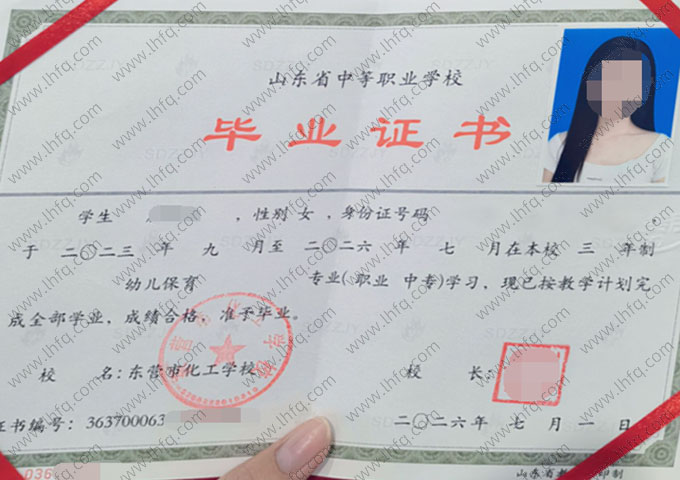 山东省中等职业学校
毕业证书
学生 ，性别 女 ，身份证号码
于 二〇二三 年 九 月至 二〇二六 年 七 月在本校 三 年制
幼儿保育 专业( 职业 中专)学习，现已按教学计划完
成全部学业，成绩合格，准予毕业。
校 名：东营市化工学校 校 长：
证书编号：363700063
二〇二六年 七 月 一 日
036
山东省 印制
www.lhfq.com
SDZZJY